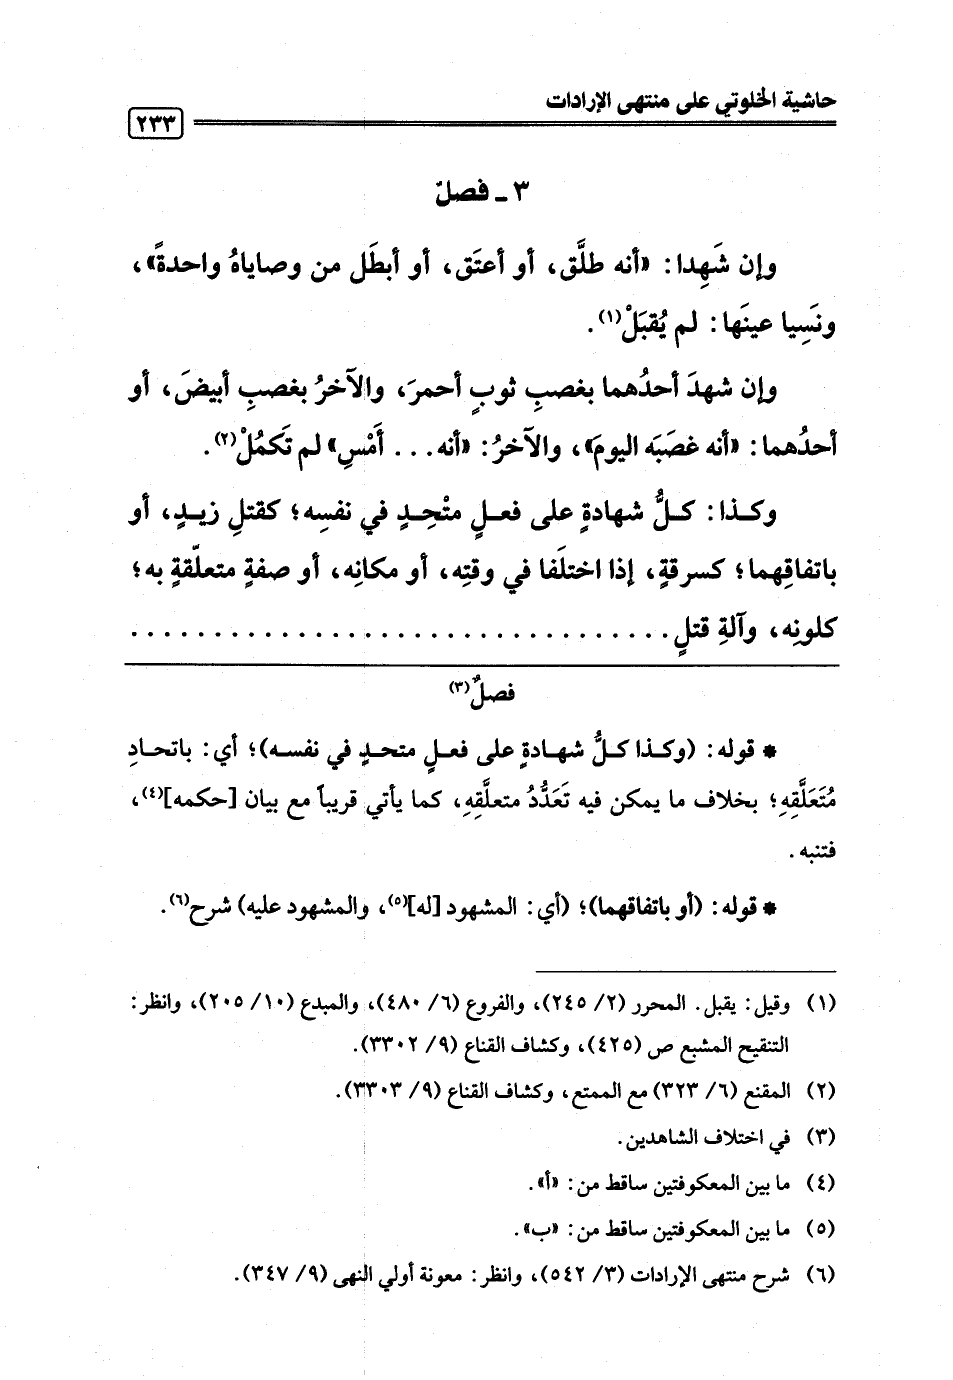 حاشية الخلوتي على منتهى الإرادات
٢٣٣
٣ ـ فصلٌ
وإن شَهِدا: «أنه طلَّق، أو أعتَق، أو أبطَل من وصاياهُ واحدةً»،
ونَسِيا عينَها: لم يُقبَلْ(١).
وإن شهدَ أحدُهما بغصبِ ثوبٍ أحمرَ، والآخرُ بغصبِ أبيضَ، أو
أحدُهما: «أنه غصَبَه اليومَ»، والآخرُ: «أنه... أمْسِ» لم تَكمُلْ(٢).
وكـذا: كـلُّ شهادةٍ على فعـلٍ متْحِـدٍ في نفسِه؛ كقتلِ زيـدٍ، أو
باتفاقِهما؛ كسرقةٍ، إذا اختلَفا في وقتِه، أو مكانِه، أو صفةٍ متعلّقةٍ به؛
كلونِه، وآلةِ قتلٍ.................................
فصلٌ(٣)
* قوله: (وكـذا كـلُّ شهـادةٍ على فعـلٍ متحـدٍ في نفسـه)؛ أي: باتحـادِ
مُتَعَلَّقِهِ؛ بخلاف ما يمكن فيه تَعَدُّدُ متعلَّقِهِ، كما يأتي قريباً مع بيان [حكمه](٤)،
فتنبه.
* قوله: (أو باتفاقهما)؛ (أي: المشهود [له](٥)، والمشهود عليه) شرح(٦).
(١) وقيل: يقبل. المحرر (٢/ ٢٤٥)، والفروع (٦/ ٤٨٠)، والمبدع (١٠/ ٢٠٥)، وانظر:
التنقيح المشبع ص (٤٢٥)، وكشاف القناع (٩/ ٣٣٠٢).
(٢) المقنع (٦/ ٣٢٣) مع الممتع، وكشاف القناع (٩/ ٣٣٠٣).
(٣) في اختلاف الشاهدين.
(٤) ما بين المعكوفتين ساقط من: «أ».
(٥) ما بين المعكوفتين ساقط من: «ب».
(٦) شرح منتهى الإرادات (٣/ ٥٤٢)، وانظر: معونة أولي النهى (٩/ ٣٤٧).